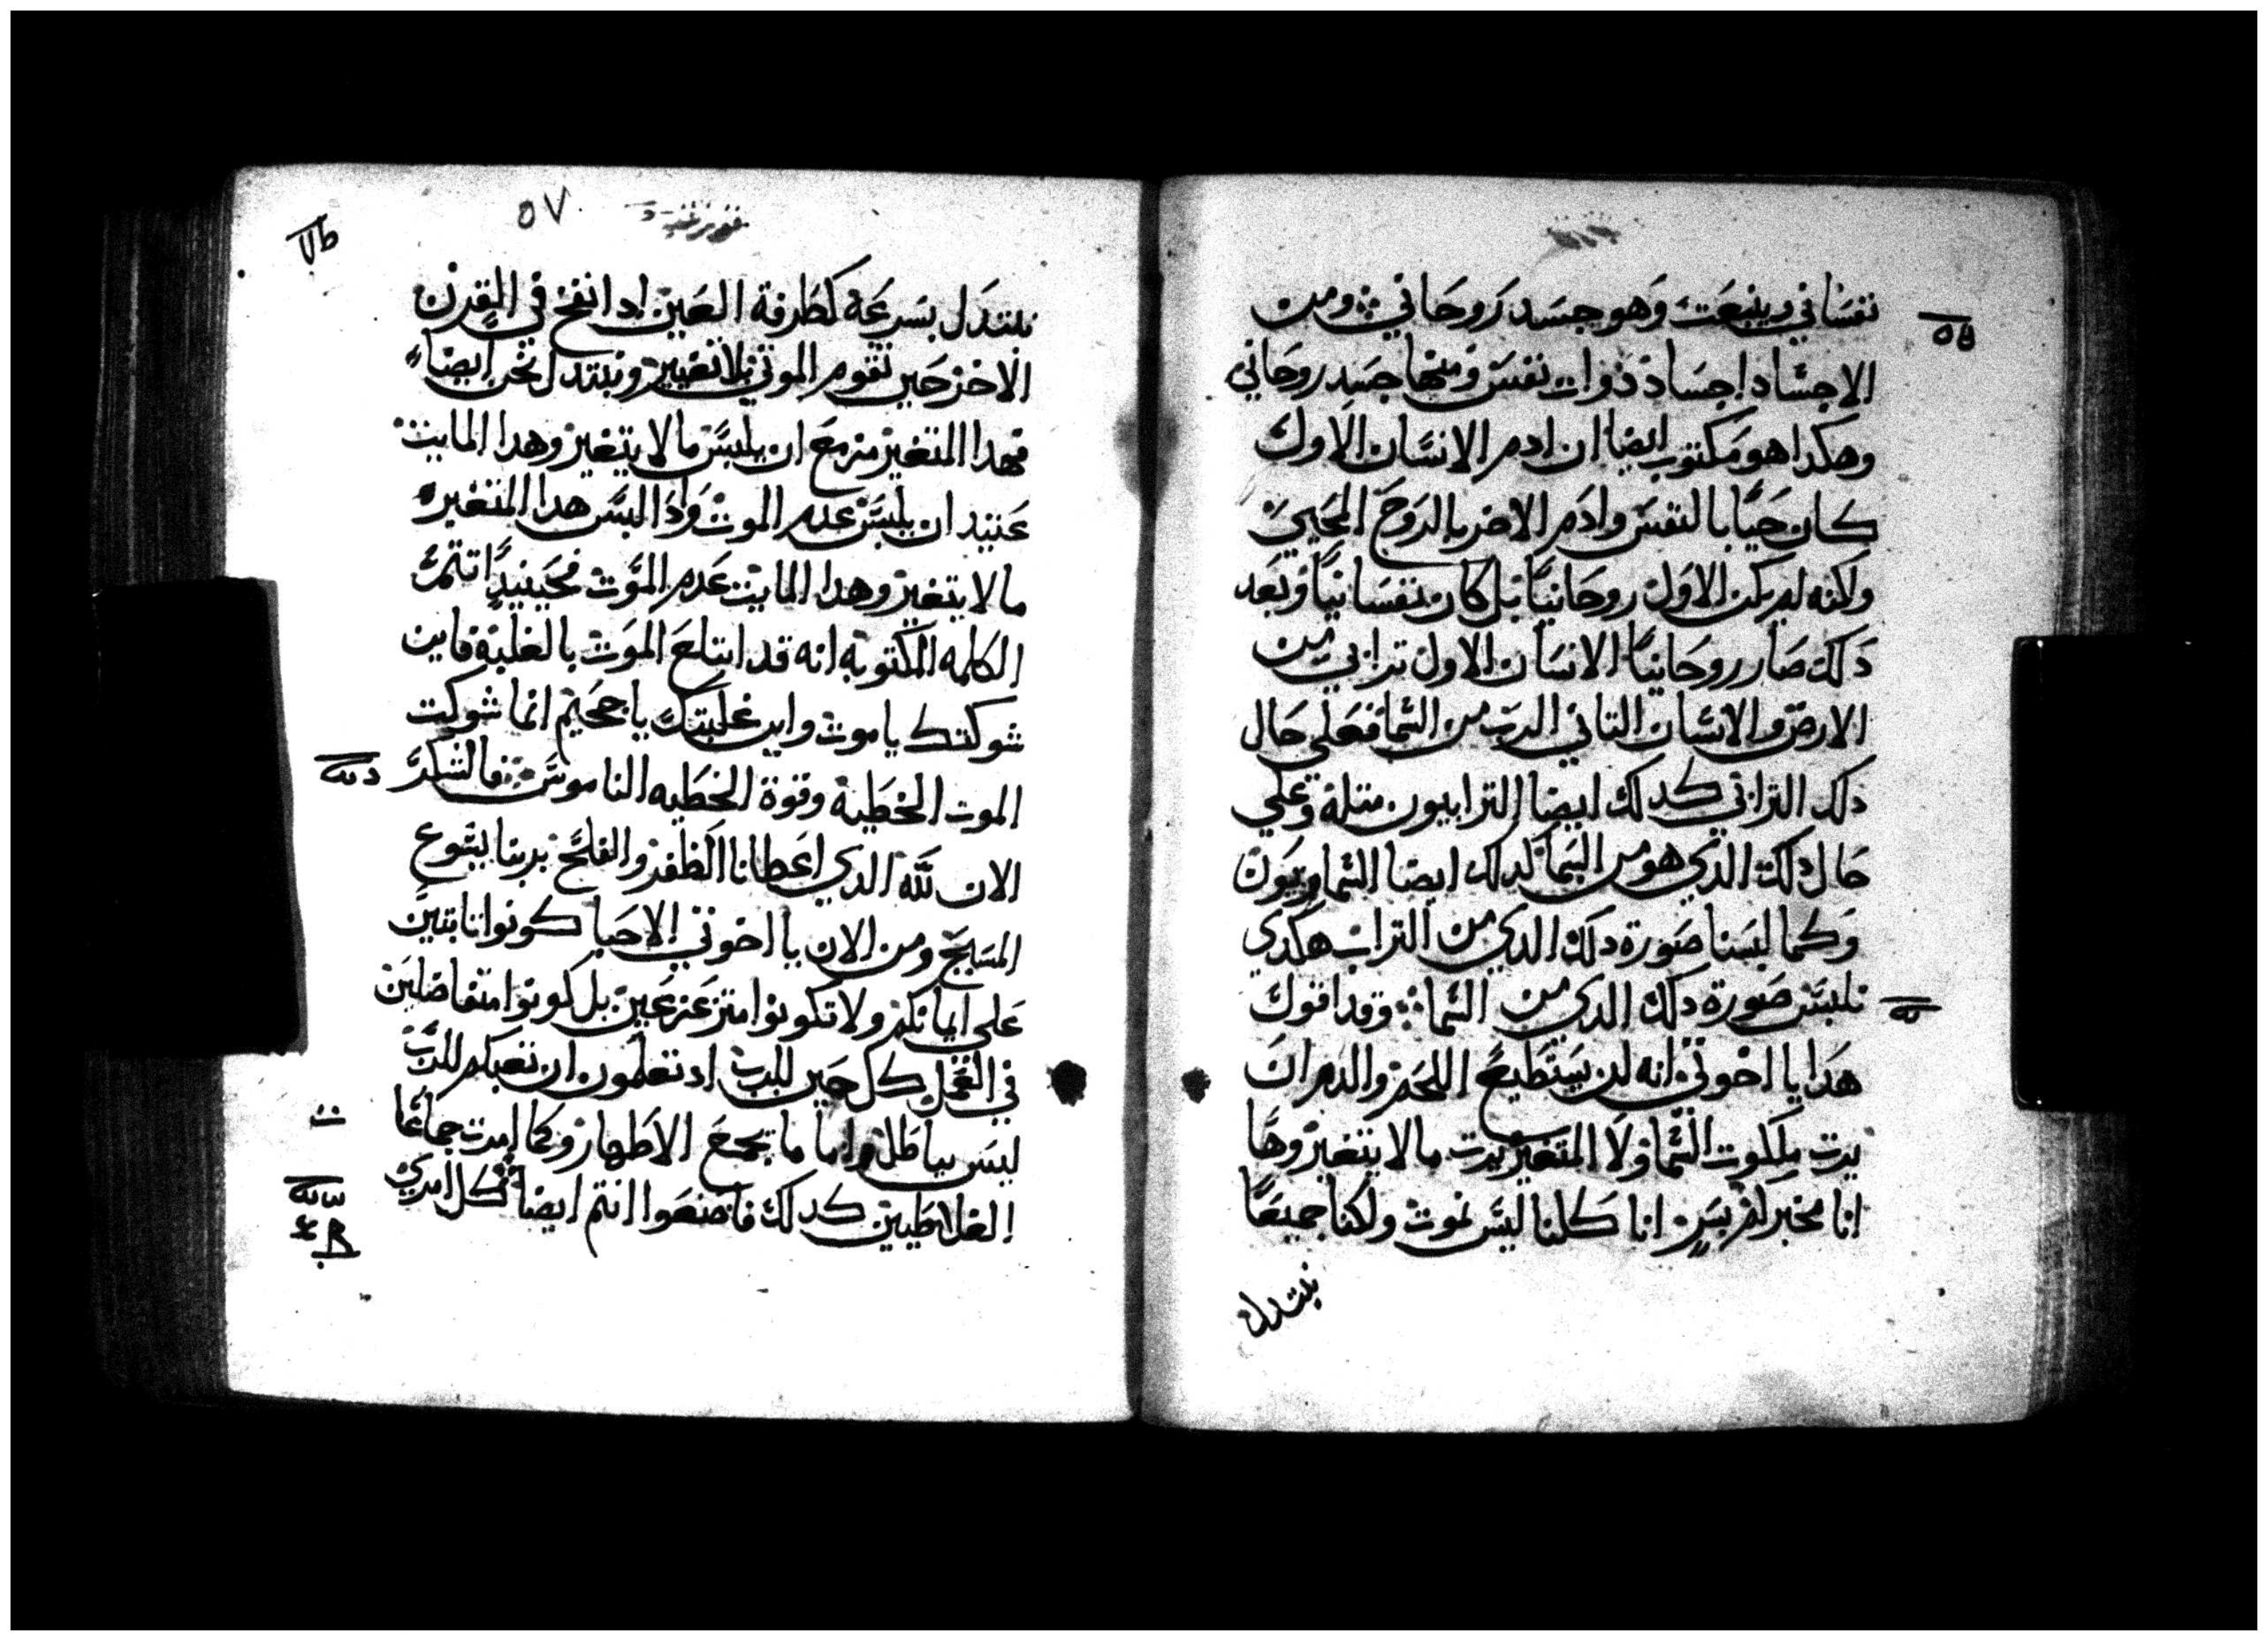 نفسَاني وينبعَث وَهو جسَد رَوحَاني ومن
الاجسَاد اجسَاد ذوات نفسَ ومنها جسَد روحَاني
وهكدا هو مكتوب ايضا ان ادم الانسَان الاول
كان حَيًا بالنفسَ وادَم الاخر بالروَح المحَيي
ولاكنه لم يكن الاوَل روحَانيًا بل كان نفسَانيًا وبَعد
دَلك صَار روحَانيًا الانسَان الاول ترابي من
الارض والانسَان التاني الرب من السَما فعَلي حَال
دلك الترابي كدلك ايضا الترابيون متله وعَلي
حَال دلك الدي هو من السَما كدلك ايضا السَماويَون
وَكما لبسَنا صَورة دلك الدي من التراب هكدي
نلبسَ صَورة دلك الدي من السَما وقد اقول
هَدا يا اخوتي انه لن يسَتطيعَ اللحَم والدم ان
يرت ملكوت السَما ولا المتغير يرت ما لا يتغير وهَا
انا مخبركم بسَر انا كلنا ليسَ نموت ولاكنا جميعًا
نبتدل
٥٧
نبتدَل بسَرعَة كطَرفة العَين ادا نفخ في القرن
الاخر حَين تقوم الموتي بلا تغيير ونبتدل نحَن ايضا
فهدا المتغير مزمعَ ان يلبسَ ما لا يتغير وهدا المايت
عَتيد ان يلبسَ عدم الموت وَادَا لبسَ هدا المتغير
ما لا يتغير وهدا المايت عَدم الموَت فحَينيدٍ تتم
الكلمه المكتوبه انه قد ابتلعَ الموَت بالغلبة فاين
شوكتك يا موت واين غلبتك يا جحَيم انما شوكت
الموت الخطَية وقوة الخطَيه الناموسَ فالشكر
الان للَّه الدي اعَطانا الظفر والفلحَ بربنا يسَوع
المسَيحَ ومن الان يا اخوتي الاحَبا كونوا تابتين
عَلي ايمانكم ولا تكونوا متزعَزعَين بل كونوا متفاضلين
في العَمل كل حَين للرب اد تعلمون ان تعَبكم للرب
ليسَ بباطَل واما ما تجمعَ الاطَهار وكما امرت جماعَات
الغلاطَيين كدلك فاصنعَوا انتم ايضا كل امري